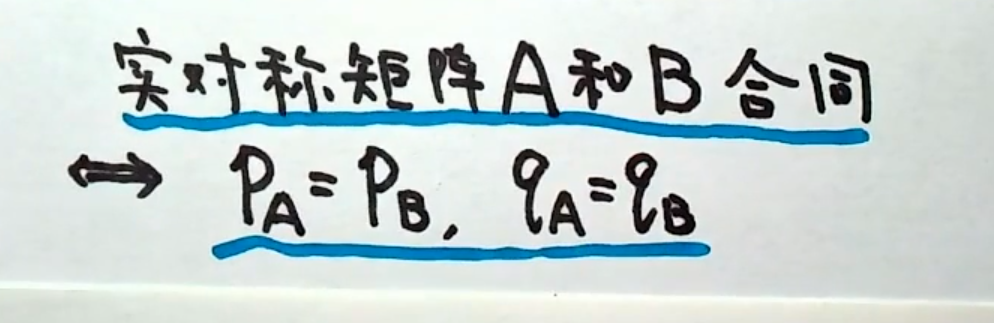 实对称矩阵A和B合同
⟺ PA=PB, qA=qB